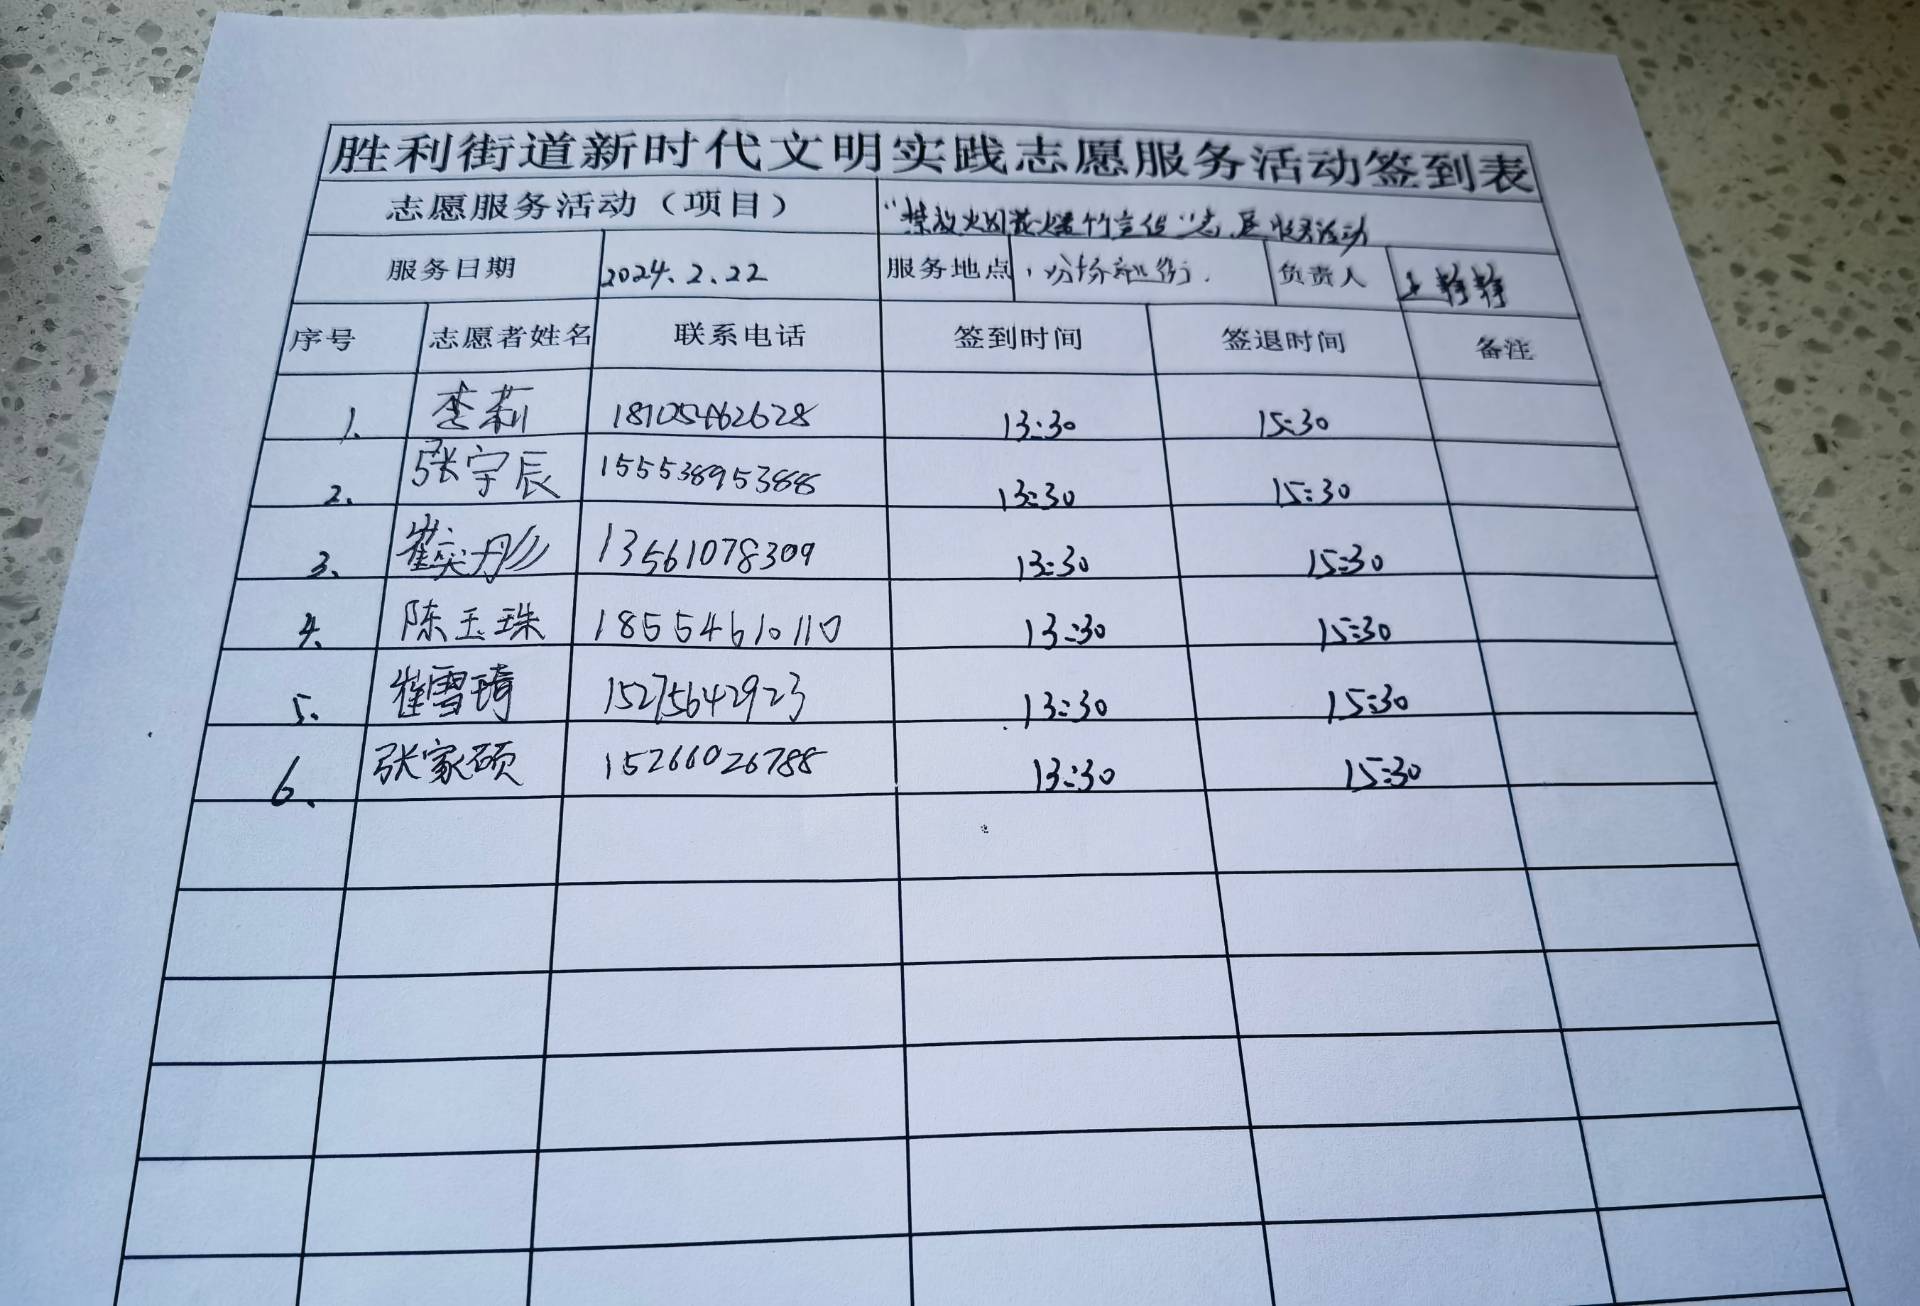 胜利街道新时代文明实践志愿服务活动签到表
志愿服务活动（项目） “禁放烟花爆竹宣传”志愿服务活动
服务日期 2024.2.22 服务地点 负责人 静静
序号 志愿者姓名 联系电话 签到时间 签退时间 备注
1. 李莉 18105462628 13:30 15:30
2. 张宇辰 155538953888 13:30 15:30
3. 崔奕彤 13561078309 13:30 15:30
4. 陈玉珠 18554610110 13:30 15:30
5. 崔雪琦 15275642923 13:30 15:30
6. 张家硕 15266026788 13:30 15:30